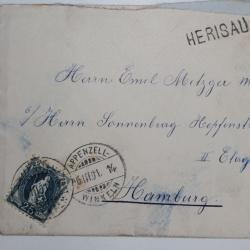 HERISAU
Herrn Emil Metzger
c/ Herrn Sonnenberg Hopfenst
II Etag
Hamburg
APPENZELL-
WINKELN